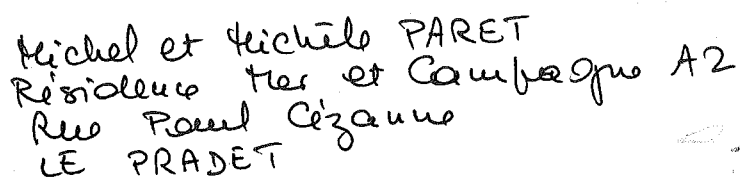 Michel et Michèle PARET
Résidence Mer et Campagne A2
Rue Paul Cézanne
LE PRADET